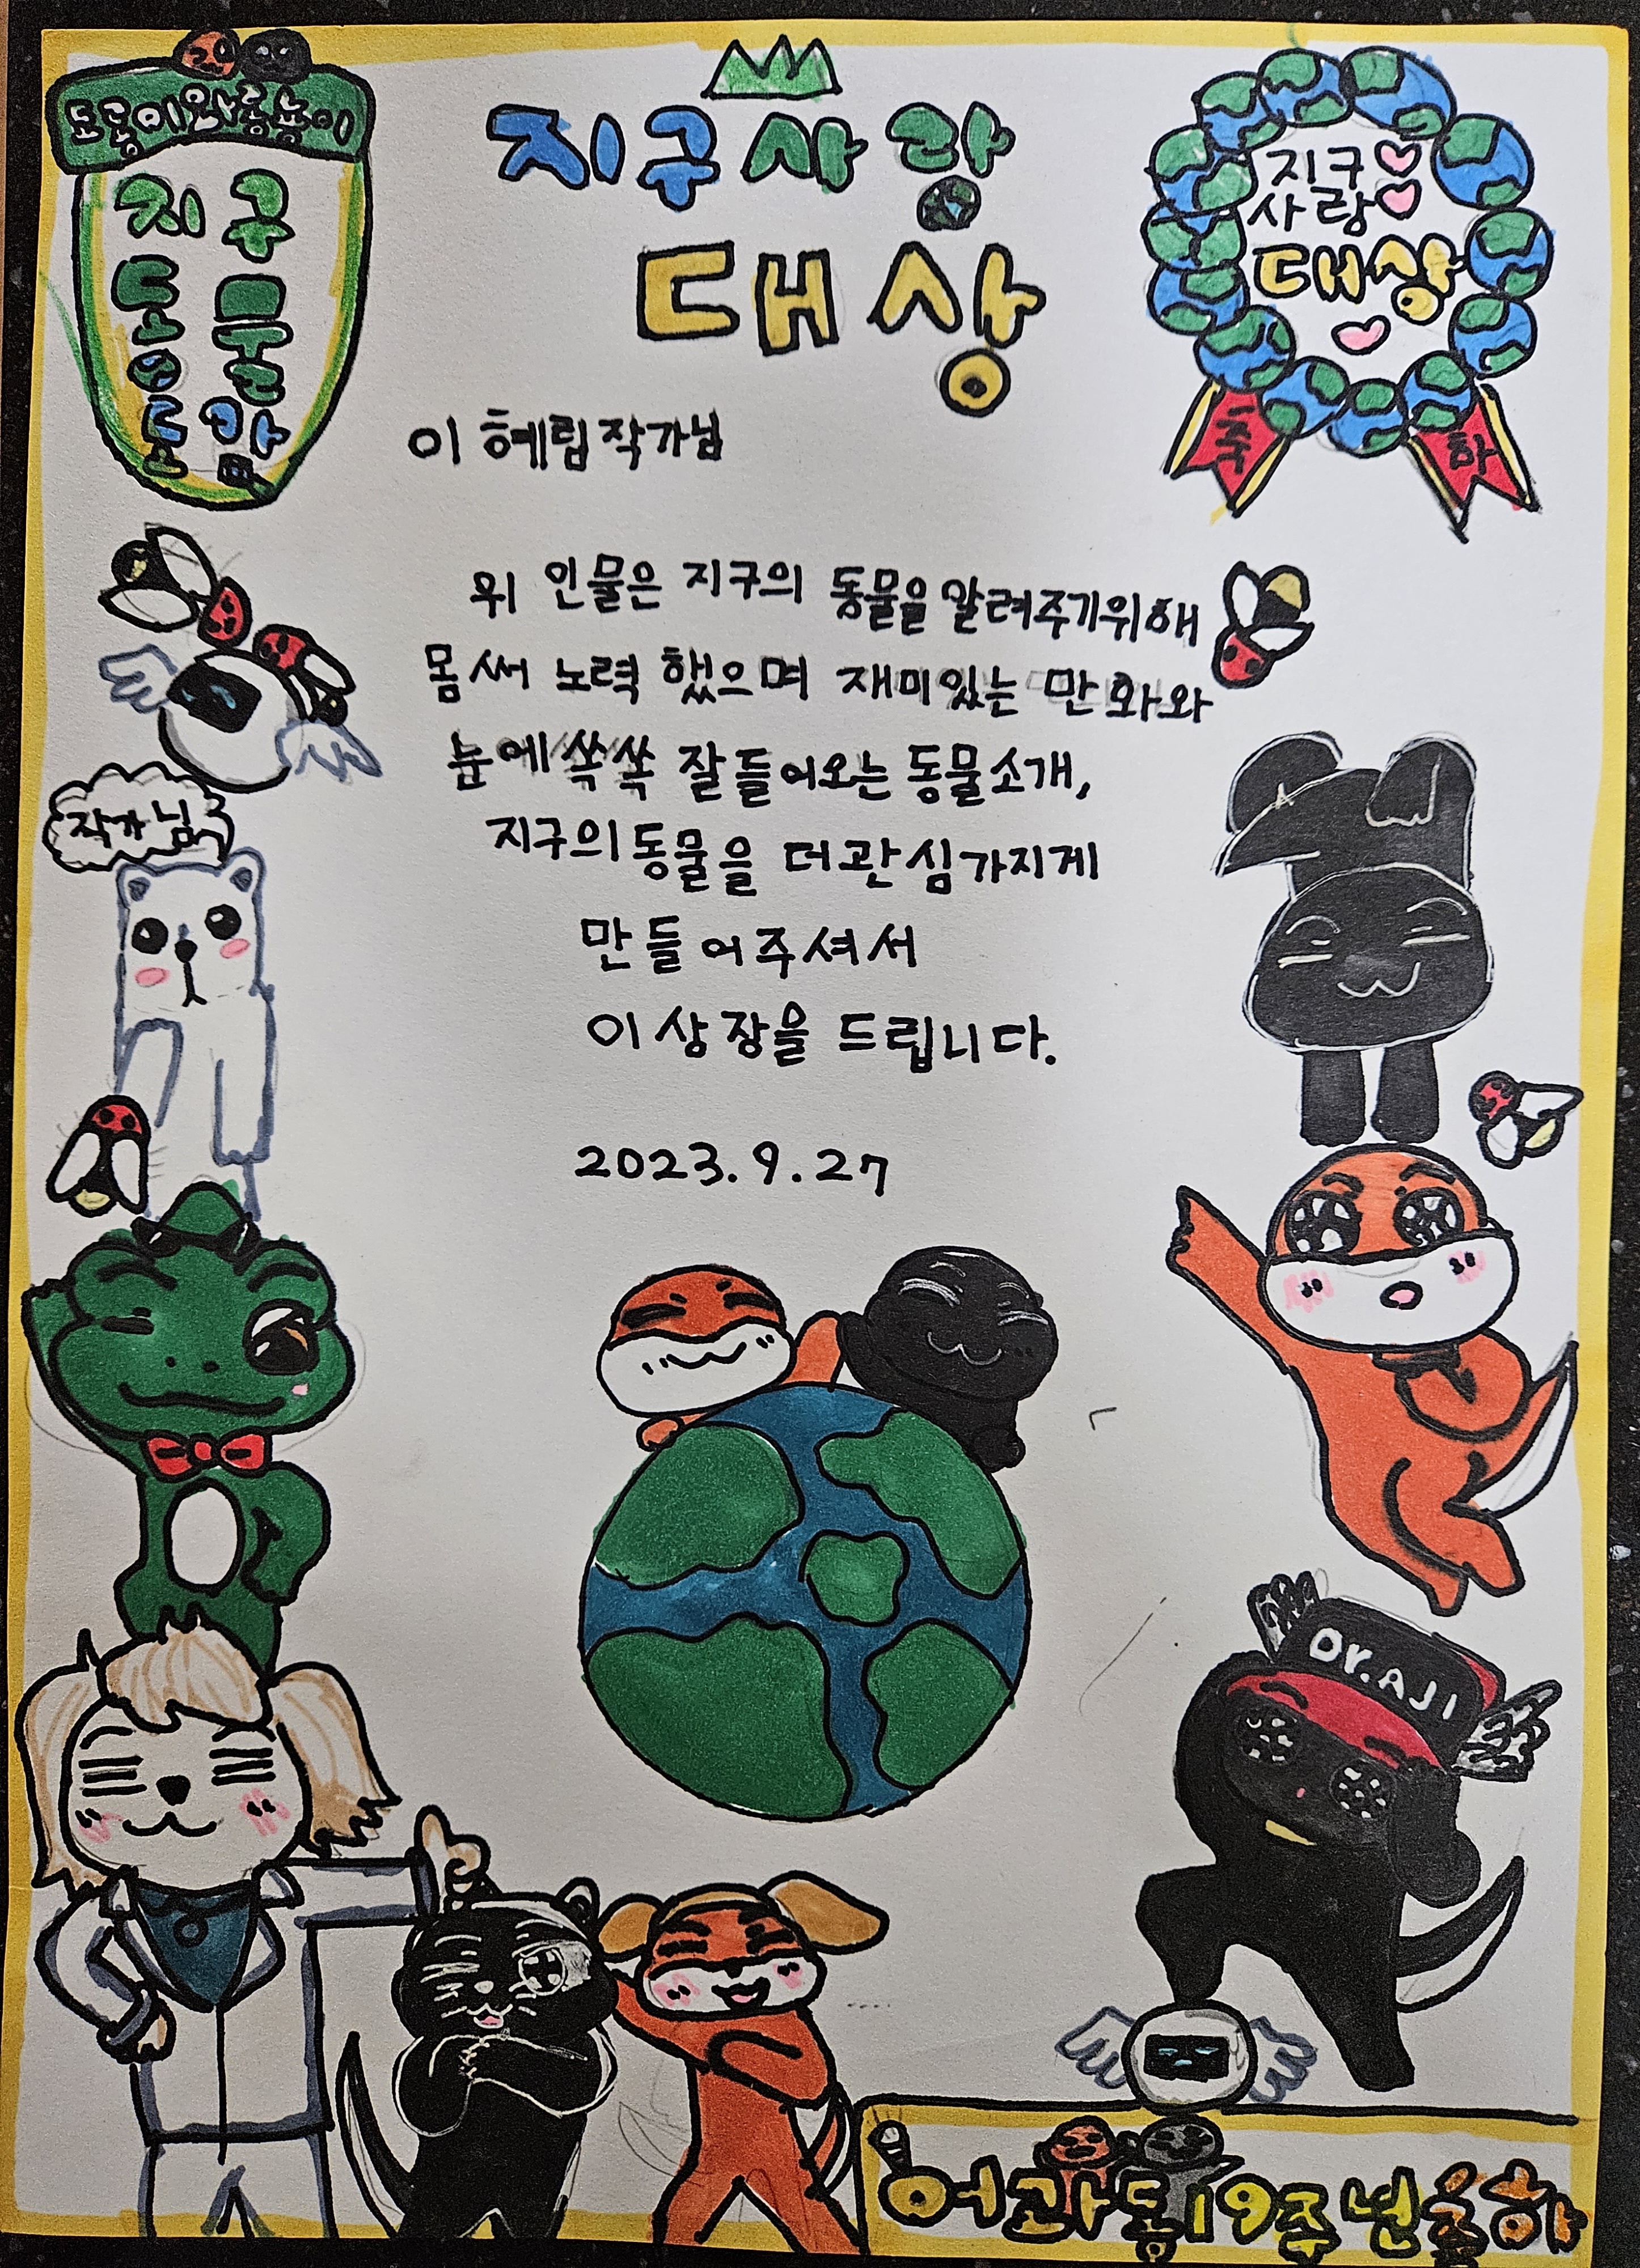 도롱이와
지구
동물
도감
지구사랑
대상
지구
사랑
대상
축 하
이 혜림 작가님
위 인물은 지구의 동물을 알려주기위해
몸 써 노력 했으며 재미있는 만화와
눈에 쏙쏙 잘 들어오는 동물소개,
지구의 동물을 더 관심가지게
만들어주셔서
이 상장을 드립니다.
2023.9.27
작가님
Dr.AJI
어과동19주년축하